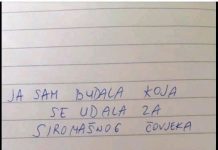 JA SAM BUDALA KOJA
SE UDALA ZA
SIROMAŠNOG ČOVJEKA